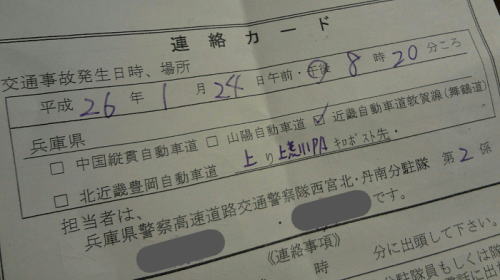 連絡カード
交通事故発生日時、場所
平成 26 年 1 月 24 日午前・午後 8 時 20 分ころ
兵庫県
□ 中国縦貫自動車道 □ 山陽自動車道 ☑ 近畿自動車道敦賀線(舞鶴道)
□ 北近畿豊岡自動車道 上り 上荒川PA キロポスト先・
担当者は、
兵庫県警察高速道路交通警察隊西宮北・丹南分駐隊 第 2 係
・ です。
《連絡事項》
時 分に出頭して下さい。
分駐隊員もしくは